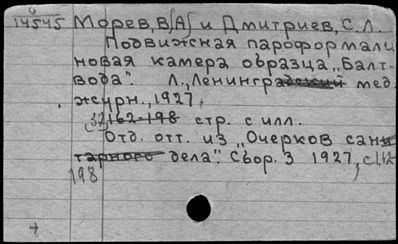 14545 Морев, В[А] и Дмитриев, С.Л.
Подвижная пароформали
новая камера образца „Балт-
вода". Л., „Ленинградский мед.
журн., 1927.
(37) 162-198 стр. с илл.
Отд. отт. из „Очерков сани
тарного дела". Сбор. 3 1927, с162
198